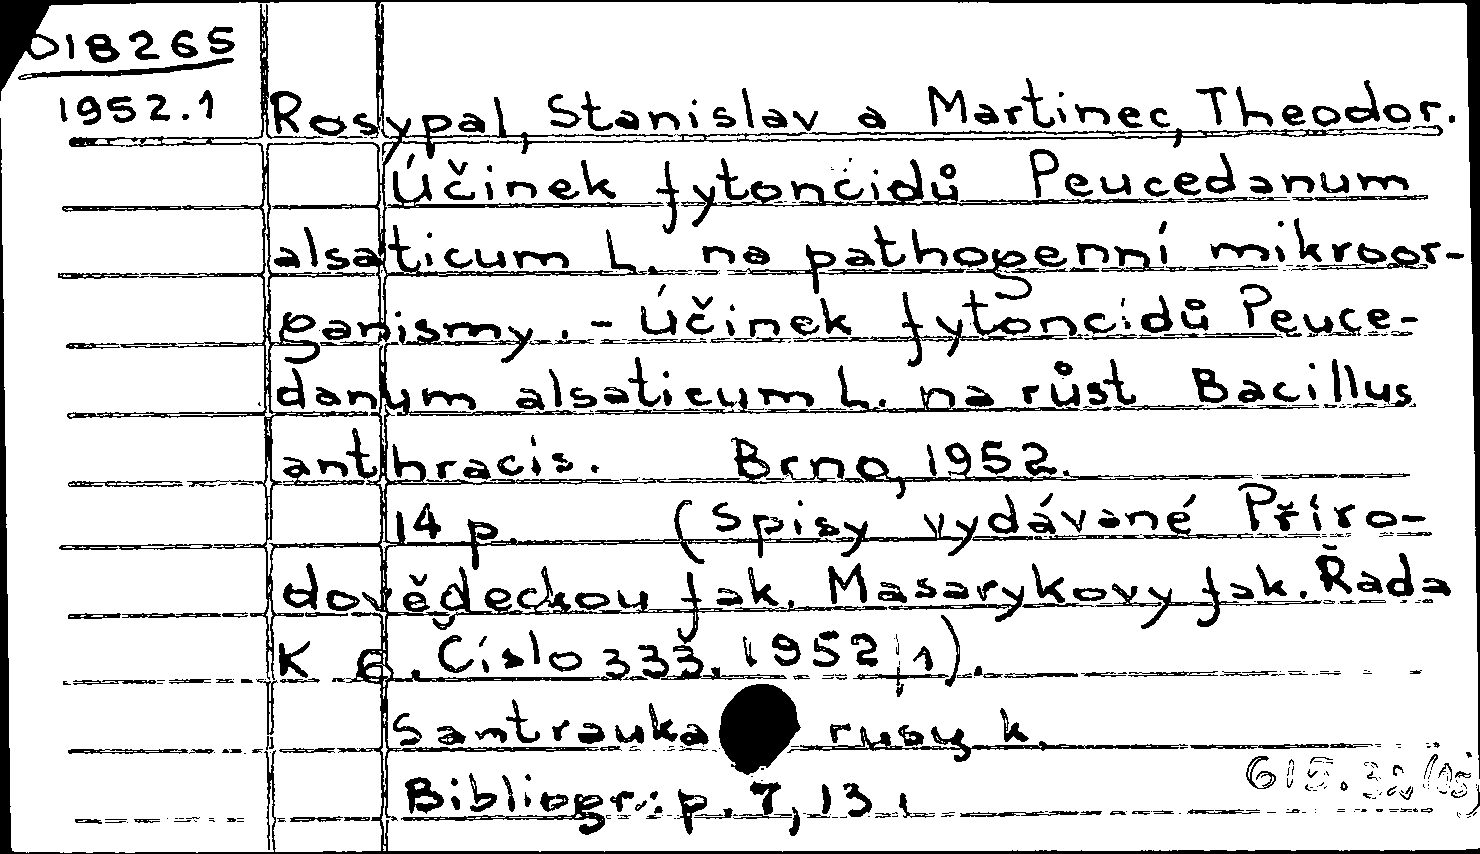 018265
1952.1
Rosypal, Stanislav a Martinec, Theodor.
Účinek fytoncidů Peucedanum
alsaticum L. na pathogenní mikroor-
ganismy. - Účinek fytoncidů Peuce-
danum alsaticum L. na růst Bacillus
anthracis. Brno, 1952.
14 p. (Spisy vydávané Příro-
dovědeckou fak. Masarykovy fak. Řada
K 6. Číslo 333. 1952/1).
Santrauka rusų k.
Bibliogr.: p. 7, 13.